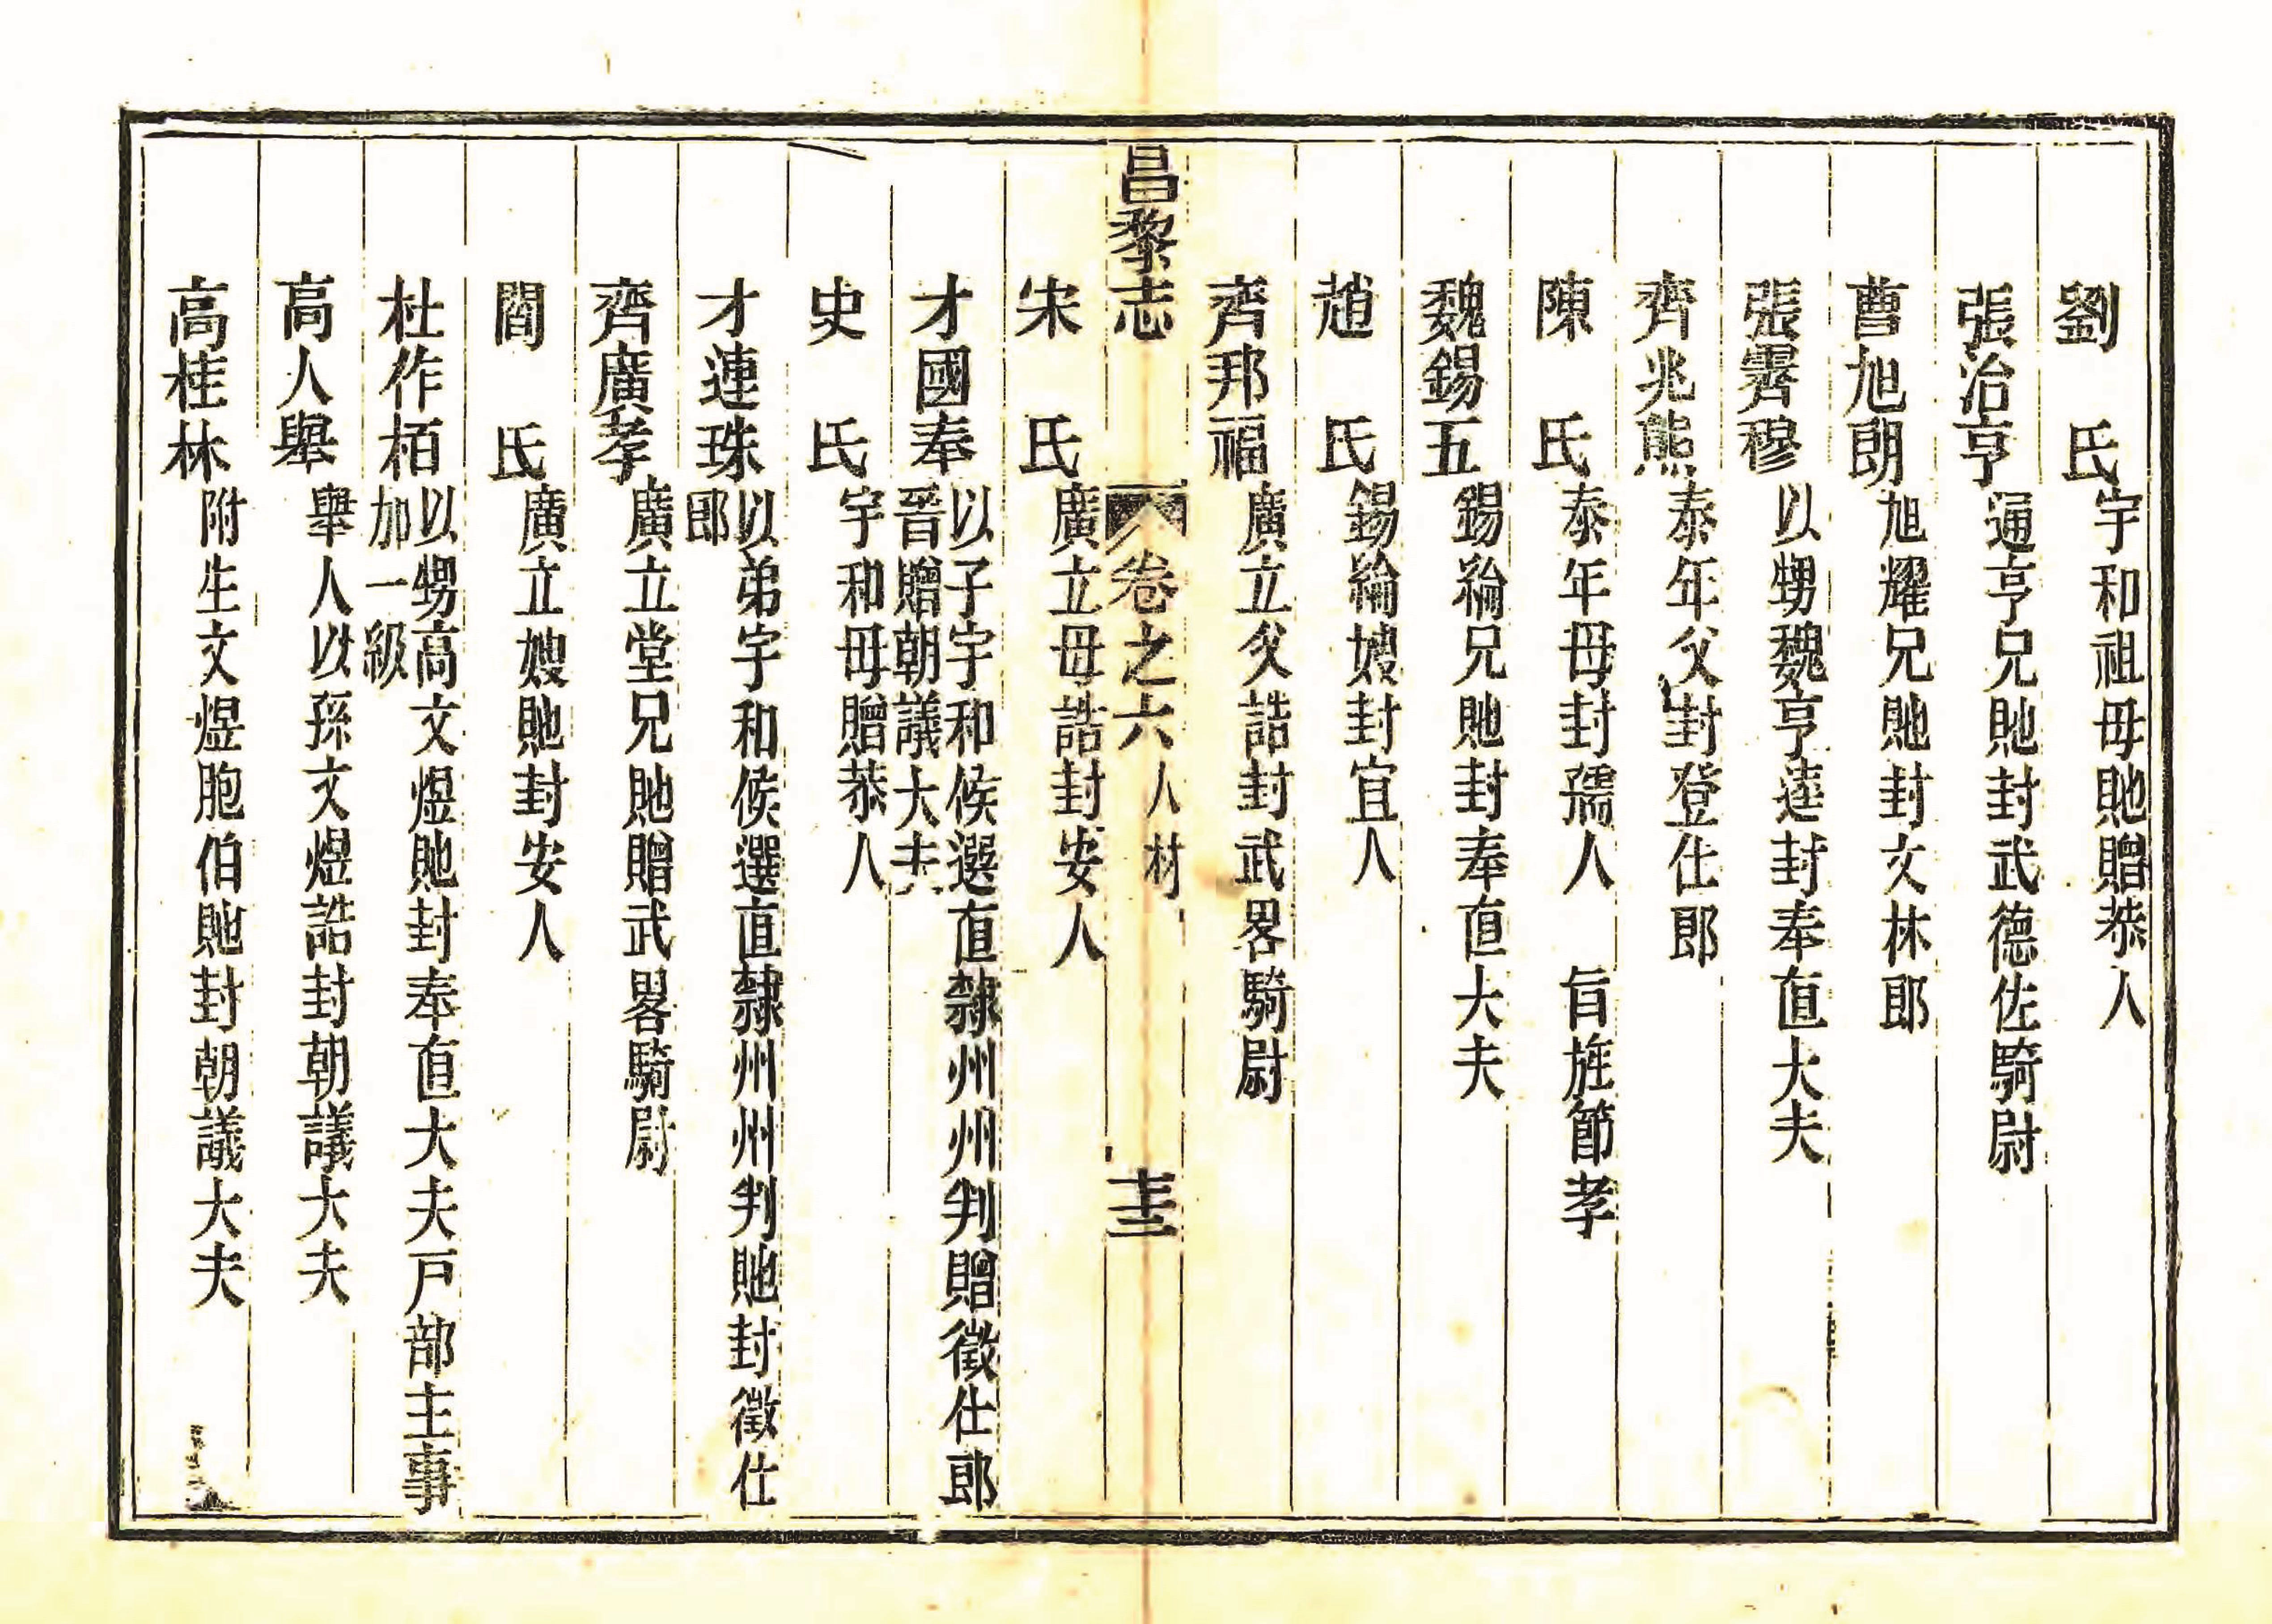 劉　氏宇和祖母貤贈恭人
張治亨通亨兄貤封武德佐騎尉
曹旭朗旭耀兄貤封文林郎
張霽穆以甥魏亨逵封奉直大夫
齊兆熊泰年父封登仕郎
陳　氏泰年母封孺人　旨旌節孝
魏錫五錫綸兄貤封奉直大夫
趙　氏錫綸嫂封宜人
齊邦福廣立父誥封武畧騎尉
昌黎志　卷之六　人材　十三
宋　氏廣立母誥封安人
才國奉以子宇和候選直隸州州判贈徵仕郎
晉贈朝議大夫
史　氏宇和母贈恭人
才連珠以弟宇和候選直隸州州判貤封徵仕
郎
齊廣孝廣立堂兄貤贈武畧騎尉
閻　氏廣立嫂貤封安人
杜作栢以甥高文煜貤封奉直大夫戸部主事
加一級
高人舉舉人以孫文煜誥封朝議大夫
高桂林附生文煜胞伯貤封朝議大夫